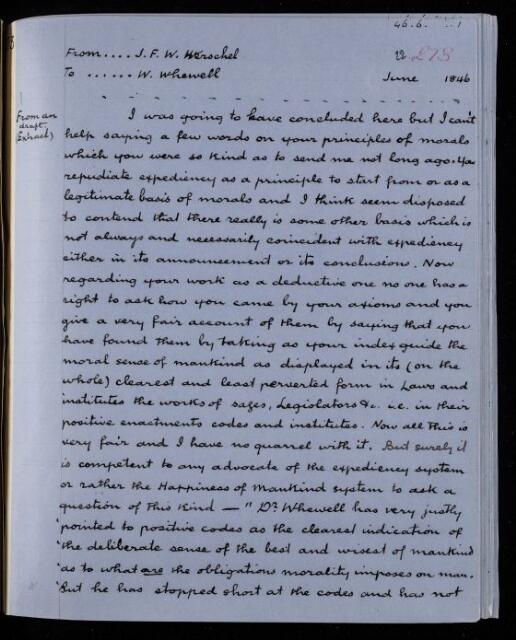 46.6.
278
From .... J. F. W. Herschel
To ...... W. Whewell
June 1846
From an
draft
Extract)
I was going to have concluded here but I can't
help saying a few words on your principles of morals
which you were so kind as to send me not long ago. You
repudiate expediency as a principle to start from or as a
legitimate basis of morals and I think seem disposed
to contend that there really is some other basis which is
not always and necessarily coincident with expediency
either in its announcement or its conclusions. Now
regarding your work as a deductive one no one has a
right to ask how you came by your axioms and you
give a very fair account of them by saying that you
have found them by taking as your index guide the
moral sense of mankind as displayed in its (on the
whole) clearest and least perverted form in Laws and
institutes the works of sages, Legislators &c. i.e. in their
positive enactments codes and institutes. Now all this is
very fair and I have no quarrel with it. But surely it
is competent to any advocate of the expediency system
or rather the Happiness of Mankind system to ask a
question of this kind — "Dr. Whewell has very justly
"pointed to positive codes as the clearest indication of
"the deliberate sense of the best and wisest of mankind
"as to what are the obligations morality imposes on man.
"But he has stopped short at the codes and has not